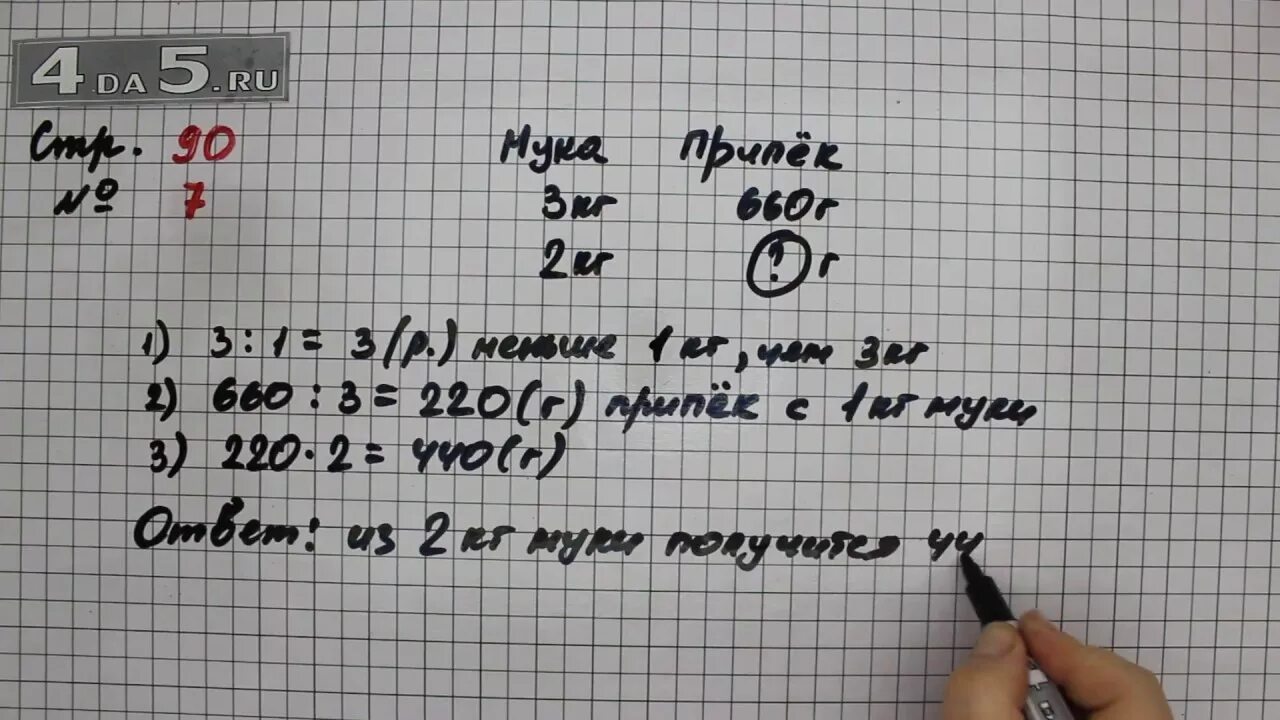 4DA5.RU
Стр. 90
№ 7
Мука Припёк
3кг 660г
2кг ? г
1) 3 : 1 = 3 (р.) меньше 1 кг, чем 3кг
2) 660 : 3 = 220(г) припёк с 1кг муки
3) 220 · 2 = 440(г)
Ответ: из 2 кг муки получится 44